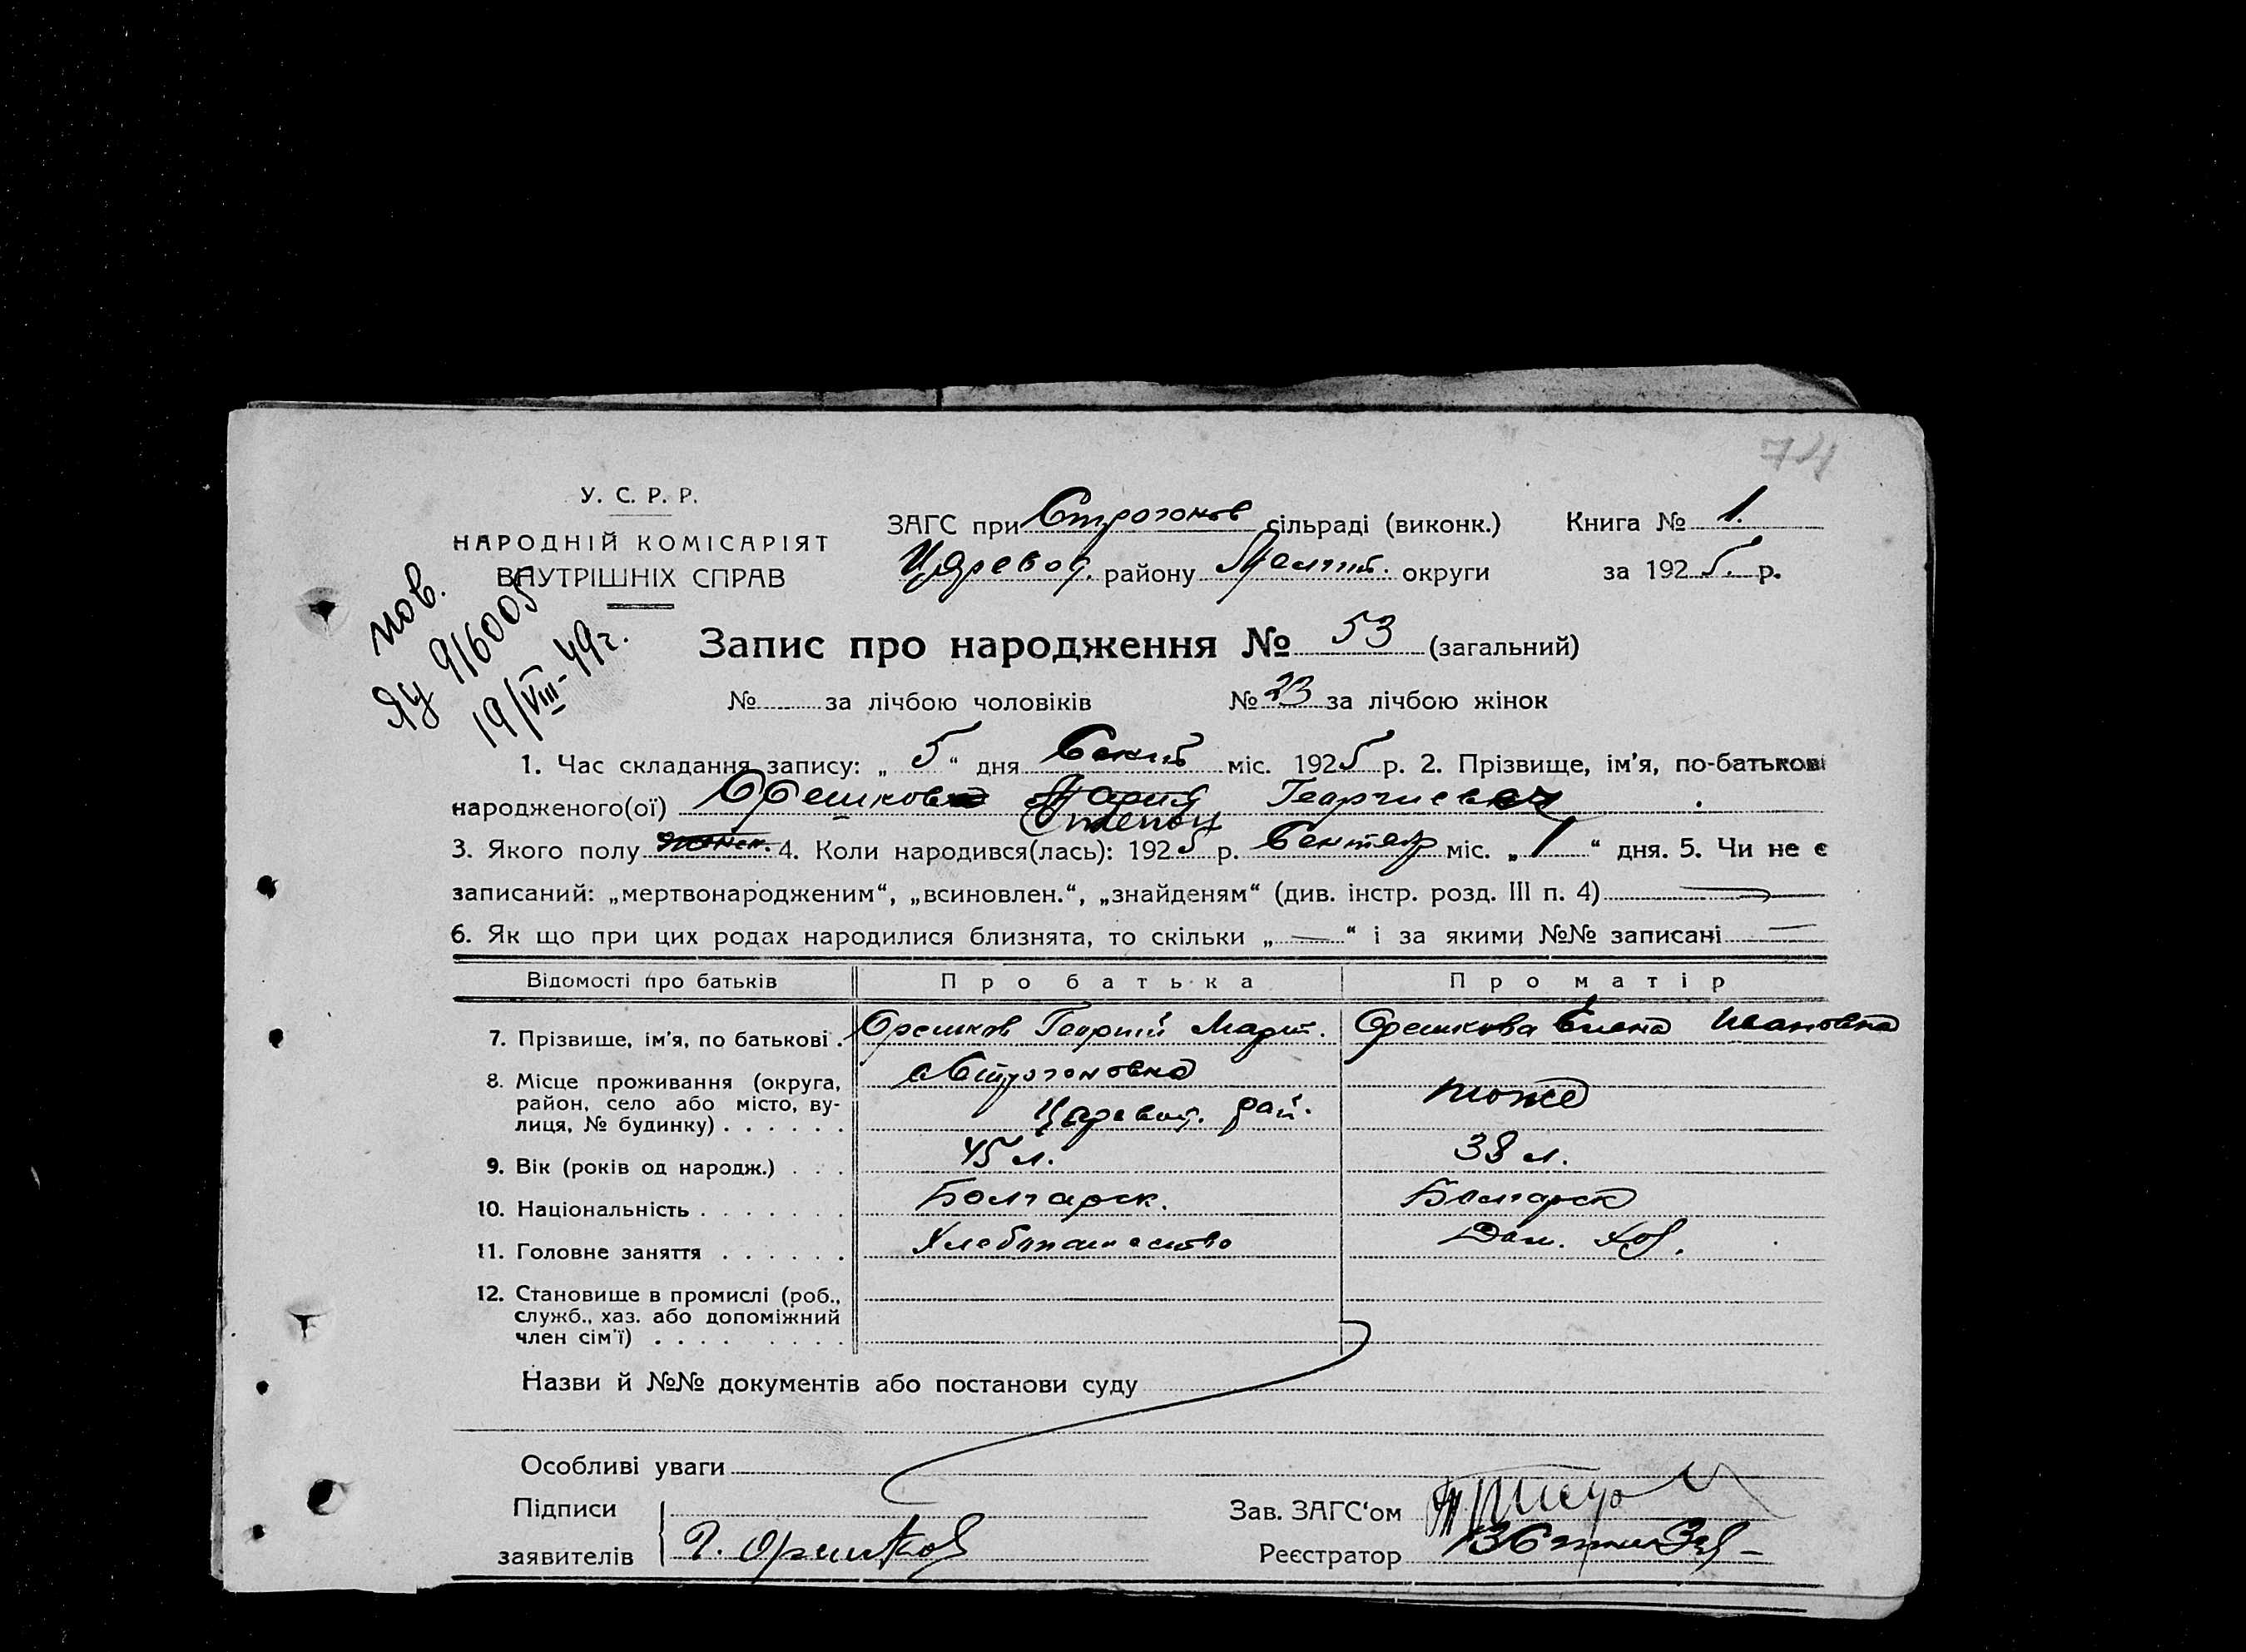 74
У. С. Р. Р.
НАРОДНІЙ КОМІСАРІЯТ
ВНУТРІШНІХ СПРАВ
ЗАГС при Строганов сільраді (виконк.) Книга № 1.
Царевод. району Мелит. округи за 1925. р.
пов.
ЯЦ 916005
19/VIII-49г.
Запис про народження № 53 (загальний)
№ за лічбою чоловіків № 23 за лічбою жінок
1. Час складання запису: „5“ дня Сент міс. 1925 р. 2. Прізвище, ім'я, по-батькові
народженого(ої) Орешков Мария Георгиевич
Степан
3. Якого полу женск. 4. Коли народився(лась): 1925 р. Сентяр міс. „1“ дня. 5. Чи не є
записаний: „мертвонародженим“, „всиновлен.“, „знайденям“ (див. інстр. розд. III п. 4) —
6. Як що при цих родах народилися близнята, то скільки „—“ і за якими №№ записані —
Відомості про батьків Про батька Про матір
7. Прізвище, ім'я, по батькові . Орешков Георгий Март. Орешкова Елена Ивановна
8. Місце проживання (округа, район, село або місто, ву-лиця, № будинку) . . . . . . Строгоновка Царевод. рай. тоже
9. Вік (років од народж.) . . . 45 л. 38 л.
10. Національність . . . . . . . Болгарск. Болгарск
11. Головне заняття . . . . . . Хлебопашество Дом. хоз.
12. Становище в промислі (роб., служб., хаз. або допоміжний член сім'ї) . . . . . . . .
Назви й №№ документів або постанови суду
Особливі уваги
Підписи
заявителів Г. Орешков
Зав. ЗАГС'ом
Реєстратор